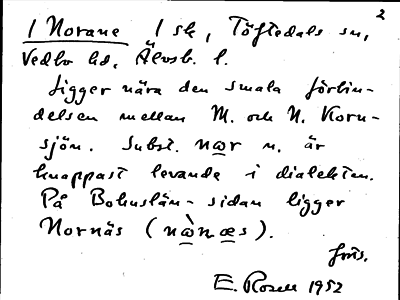 2
1 Norane 1 sk, Töftedals sn,
Vedbo hd, Älvsb. l.
Ligger nära den smala förbin-
delsen mellan M. och N. Korn-
sjön. Subst. nɷr n. är
knappast levande i dialekten.
På Bohuslän-sidan ligger
Nornäs (nɷ̀næs).
forts.
E. Rosell 1952